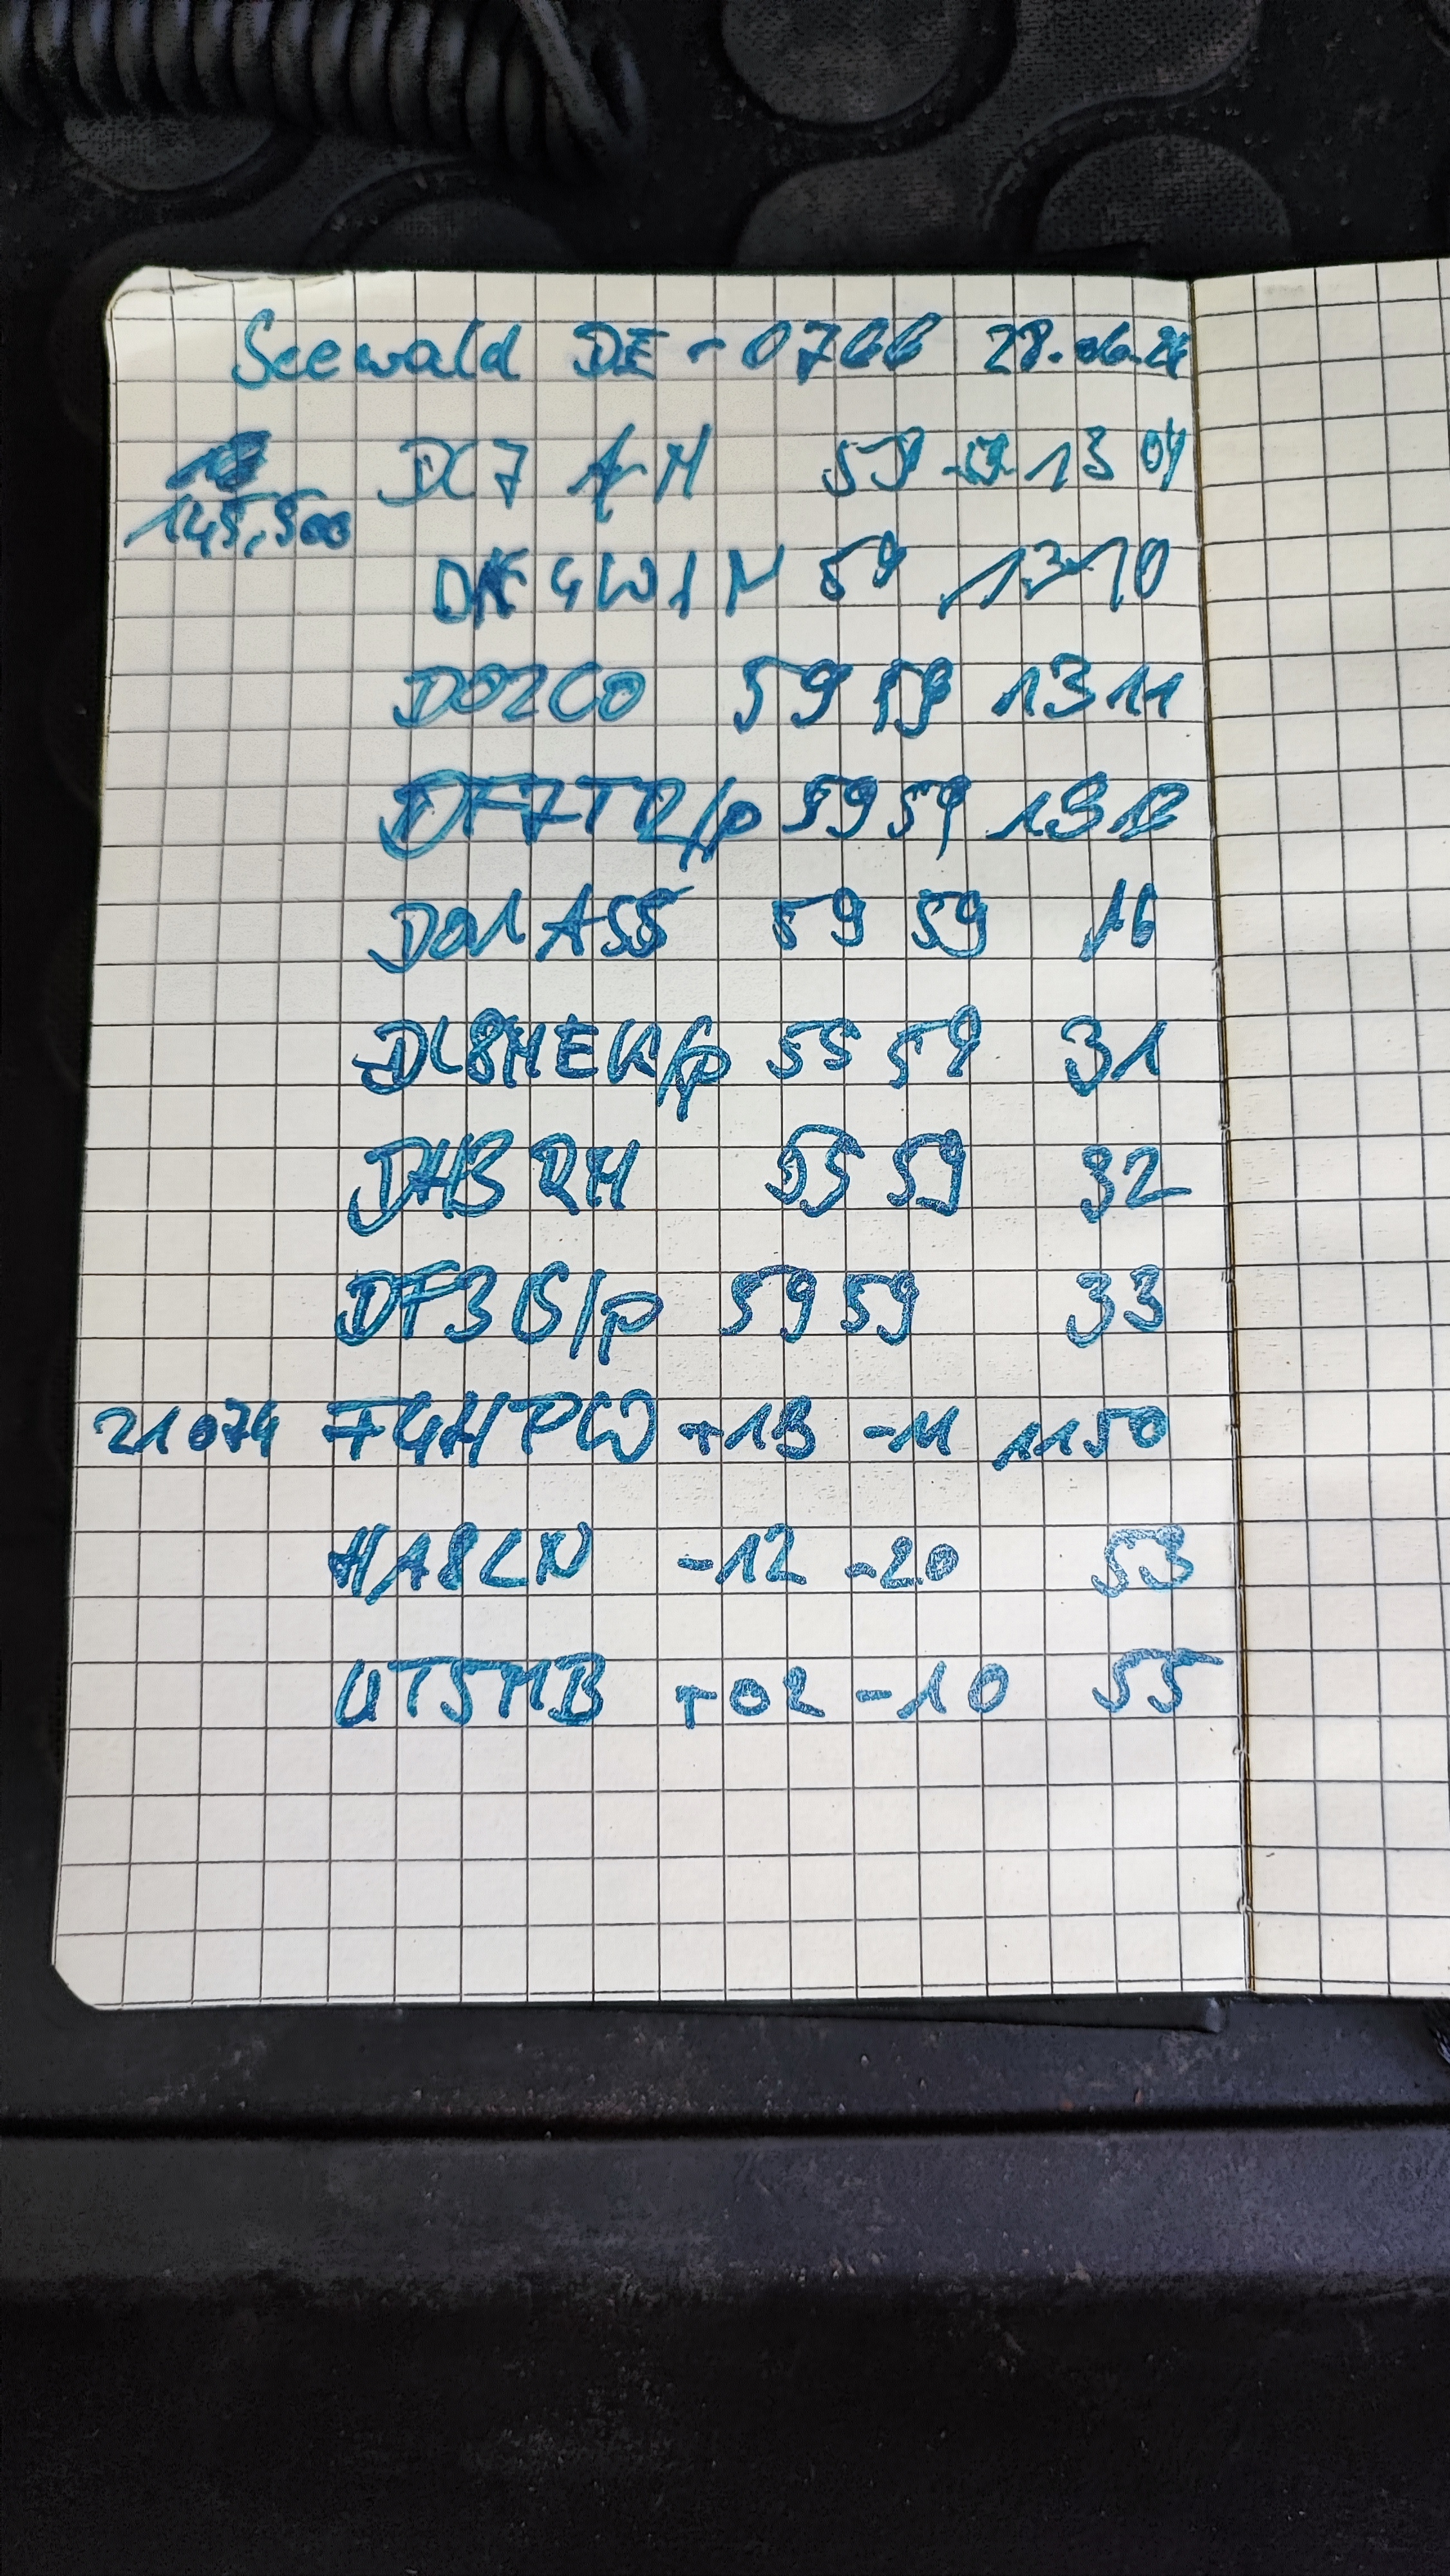 Seewald DE-0766 28.06.24
DC7 59 1304
145,500
59 1310
DO2CO 59 59 1311
DF7TR/p 59 59 1312
DO1ASS 59 59 16
DL8MEK/p 55 59 31
DH3RM 55 59 32
DF3 /p 59 59 33
21 074 F4HPW +13 -11 1150
HA8LN -12 -20 53
UT5MB +02 -10 55